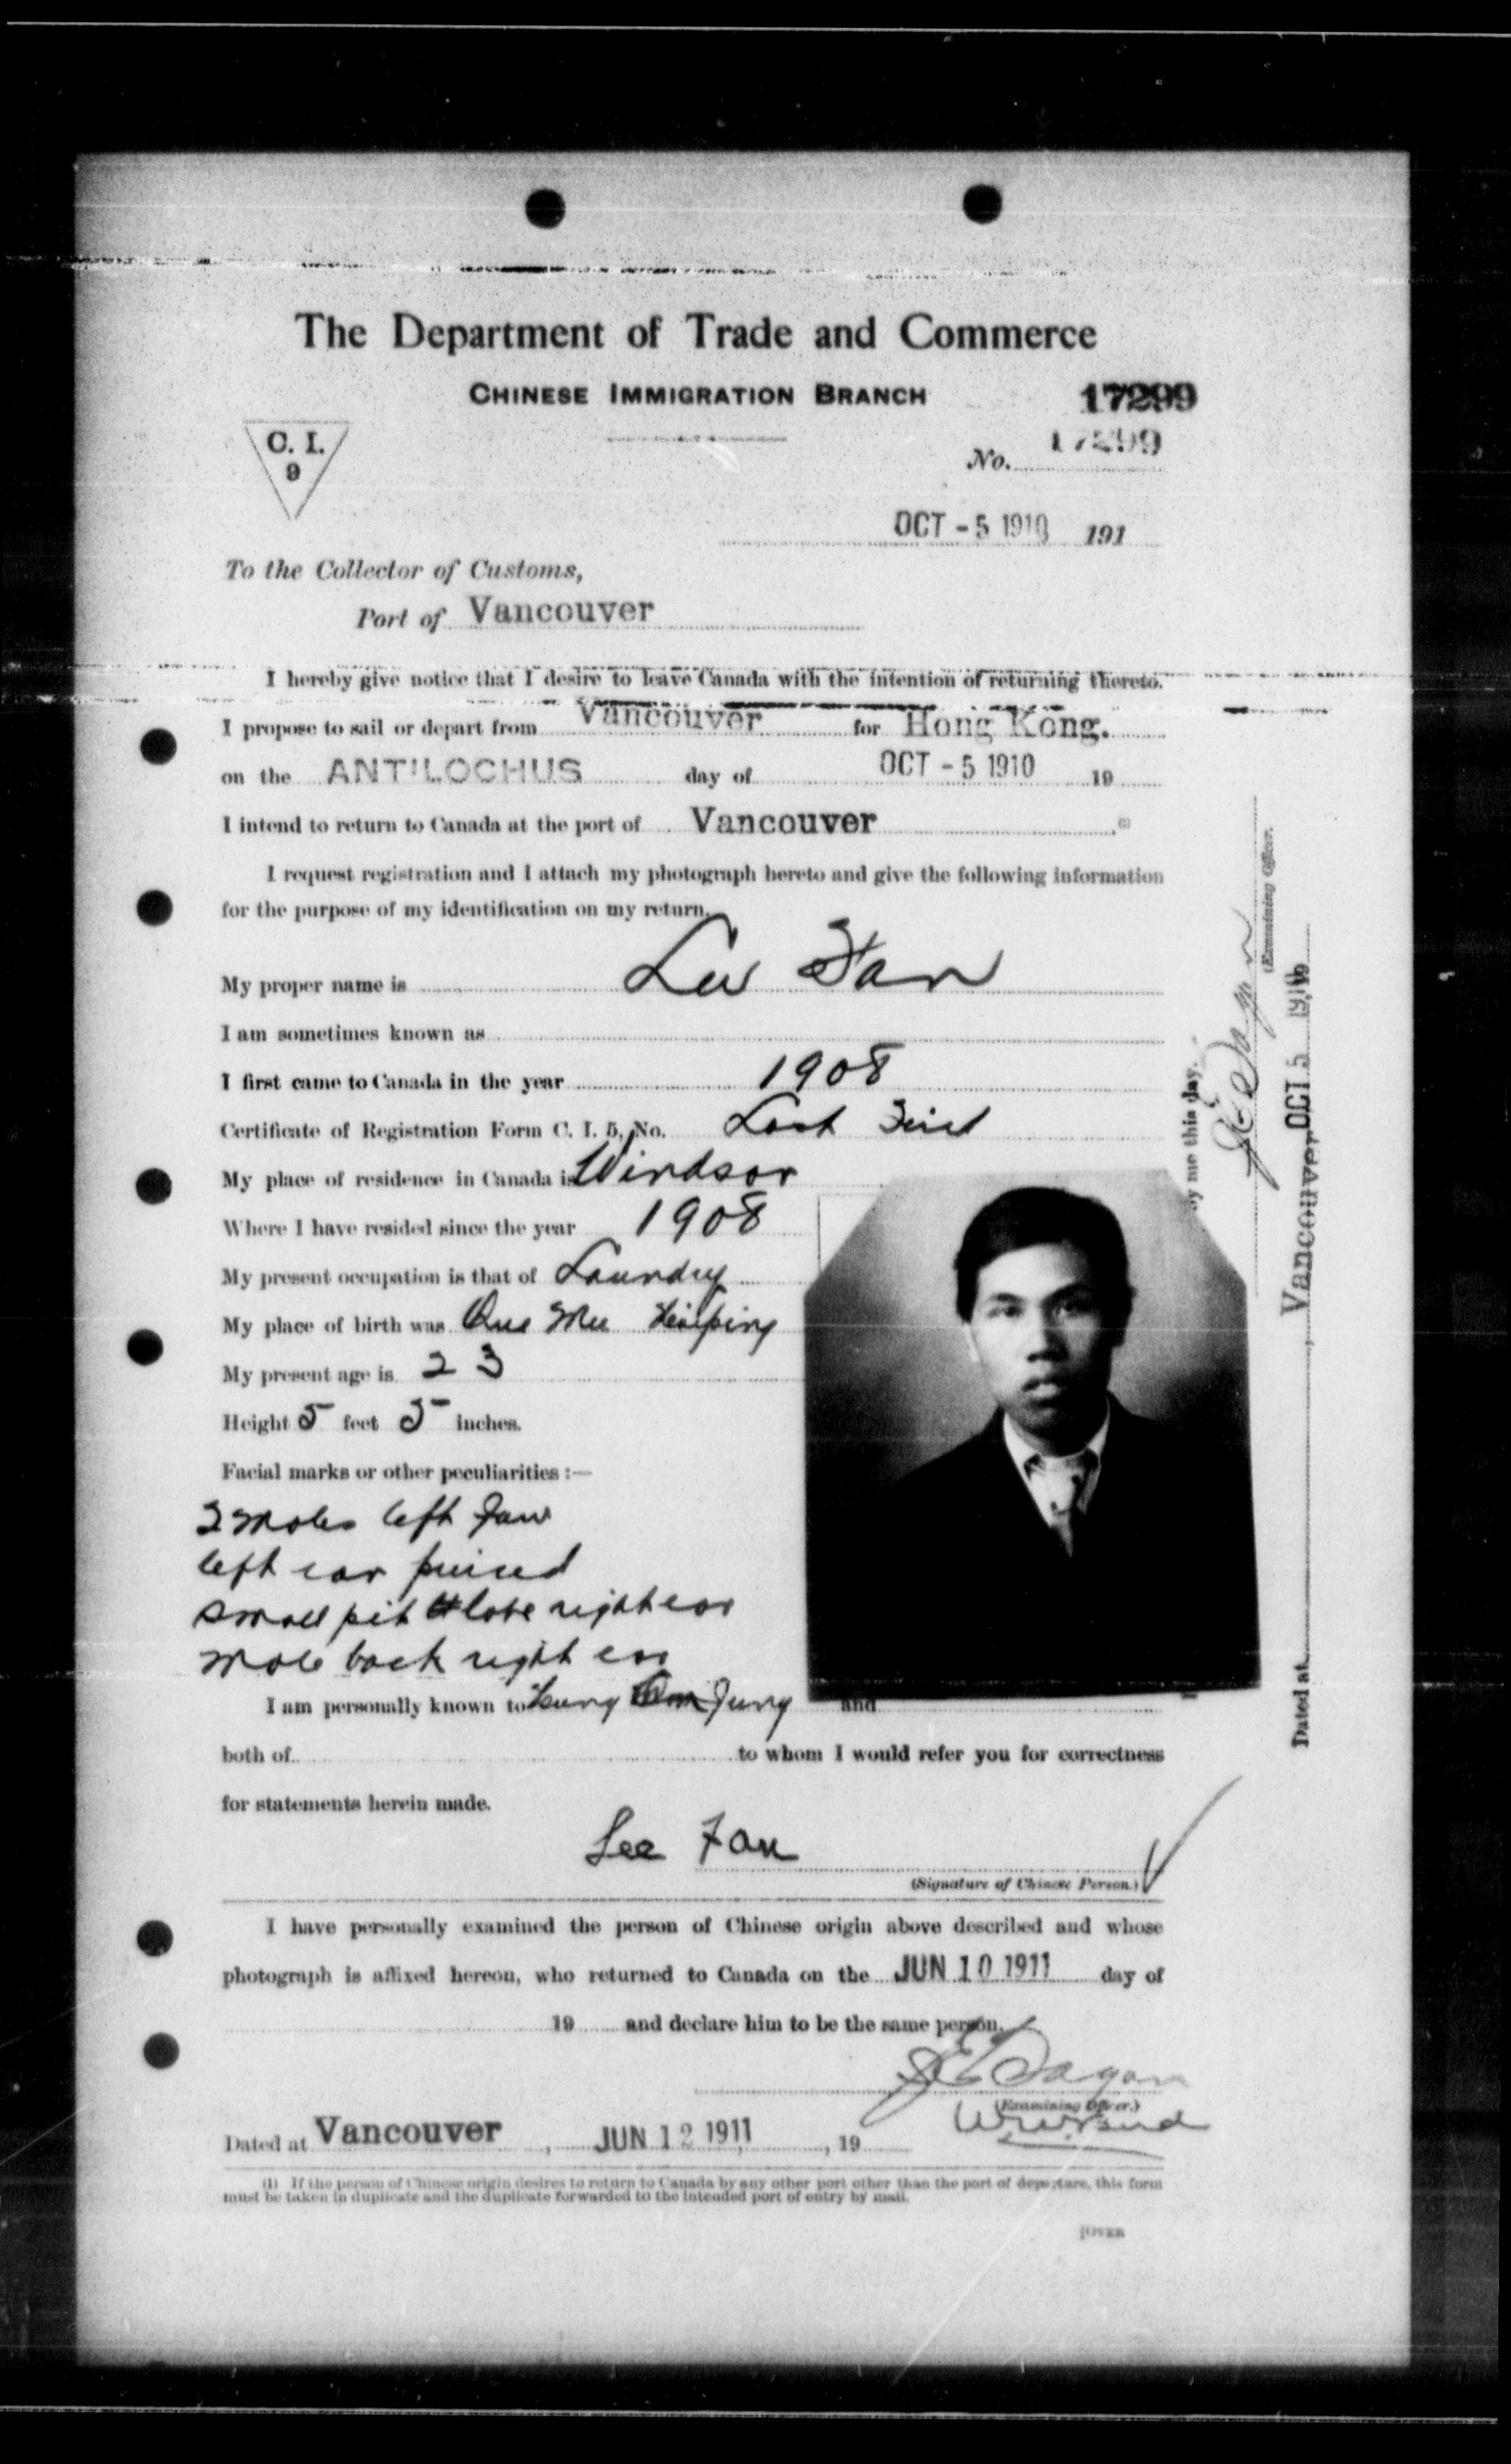 The Department of Trade and Commerce
CHINESE IMMIGRATION BRANCH
17299
C. I.
9
No. 17299
OCT - 5 1910 191
To the Collector of Customs,
Port of Vancouver
I hereby give notice that I desire to leave Canada with the intention of returning thereto.
I propose to sail or depart from Vancouver for Hong Kong.
on the ANTILOCHUS day of OCT - 5 1910 19
I intend to return to Canada at the port of Vancouver (1)
I request registration and I attach my photograph hereto and give the following information
for the purpose of my identification on my return.
My proper name is Lee Fan
I am sometimes known as
I first came to Canada in the year 1908
Certificate of Registration Form C. I. 5, No. Lost
My place of residence in Canada is Windsor
Where I have resided since the year 1908
My present occupation is that of Laundry
My place of birth was
My present age is 23
Height 5 feet 5 inches.
Facial marks or other peculiarities :—
2 moles left jaw
left ear pierced
small pit lobe right ear
mole back right ear
I am personally known to Jung and
both of to whom I would refer you for correctness
for statements herein made.
Lee Fan
(Signature of Chinese Person.)
I have personally examined the person of Chinese origin above described and whose
photograph is affixed hereon, who returned to Canada on the JUN 10 1911 day of
19 and declare him to be the same person.
(Examining Officer.)
Dated at Vancouver, JUN 12 1911, 19
(1) If the person of Chinese origin desires to return to Canada by any other port other than the port of departure, this form
must be taken in duplicate and the duplicate forwarded to the intended port of entry by mail.
[OVER
by me this day.
(Examining Officer.
Dated at , Vancouver, OCT 5 1910